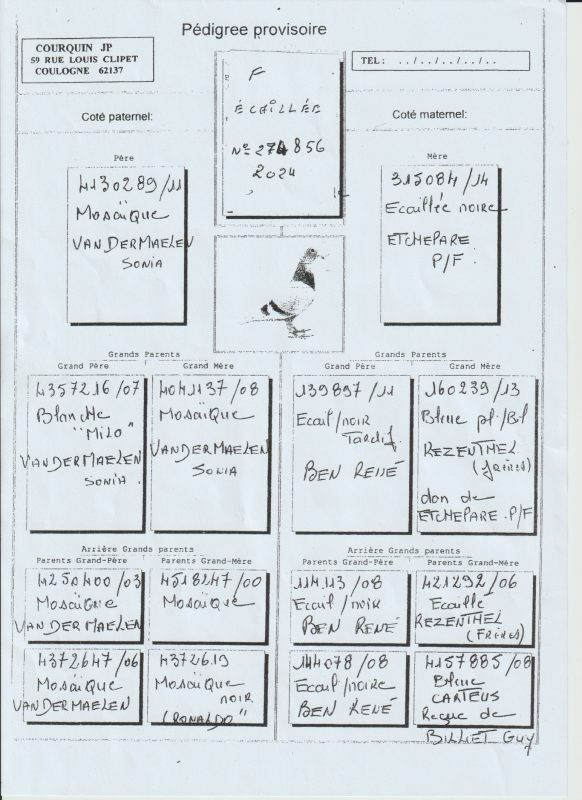 Pédigree provisoire
COURQUIN JP
59 RUE LOUIS CLIPET
COULOGNE 62137
TEL : ../../../../..
F
ÉCAILLÉE
N° 274856
2024
Coté paternel:
Coté maternel:
Père
4130289/11
Mosaïque
VANDERMAELEN
SONIA
Mère
315084/14
Ecaillée noire
ETCHEPARE
P/F
Grands Parents
Grand Père
Grand Mère
4357216/07
Blanche
"Milo"
VANDERMAELEN
SONIA.
4041137/08
Mosaïque
VANDERMAELEN
SONIA
Grands Parents
Grand Père
Grand Mère
139897/11
Ecail/noir
Tardif
BEN RENÉ
160239/13
Bleue pl./Bl
REZENTHEL
(frères)
don de
ETCHEPARE.P/F
Arrière Grands parents
Parents Grand-Père
Parents Grand-Mère
4250400/03
Mosaïque
VANDERMAELEN
4518247/00
Mosaïque
4372647/06
Mosaïque
VANDERMAELEN
4372619
Mosaïque
NOIR
(RONALDO"
Arrière Grands parents
Parents Grand-Père
Parents Grand-Mère
114113/08
Ecail/noir
BEN RENÉ
421292/06
Ecaillé
REZENTHEL
(Frères)
144078/08
Ecail/noire
BEN RENÉ
4157885/08
Bleue
CARTEUS
Reçue de
BILLIET Guy